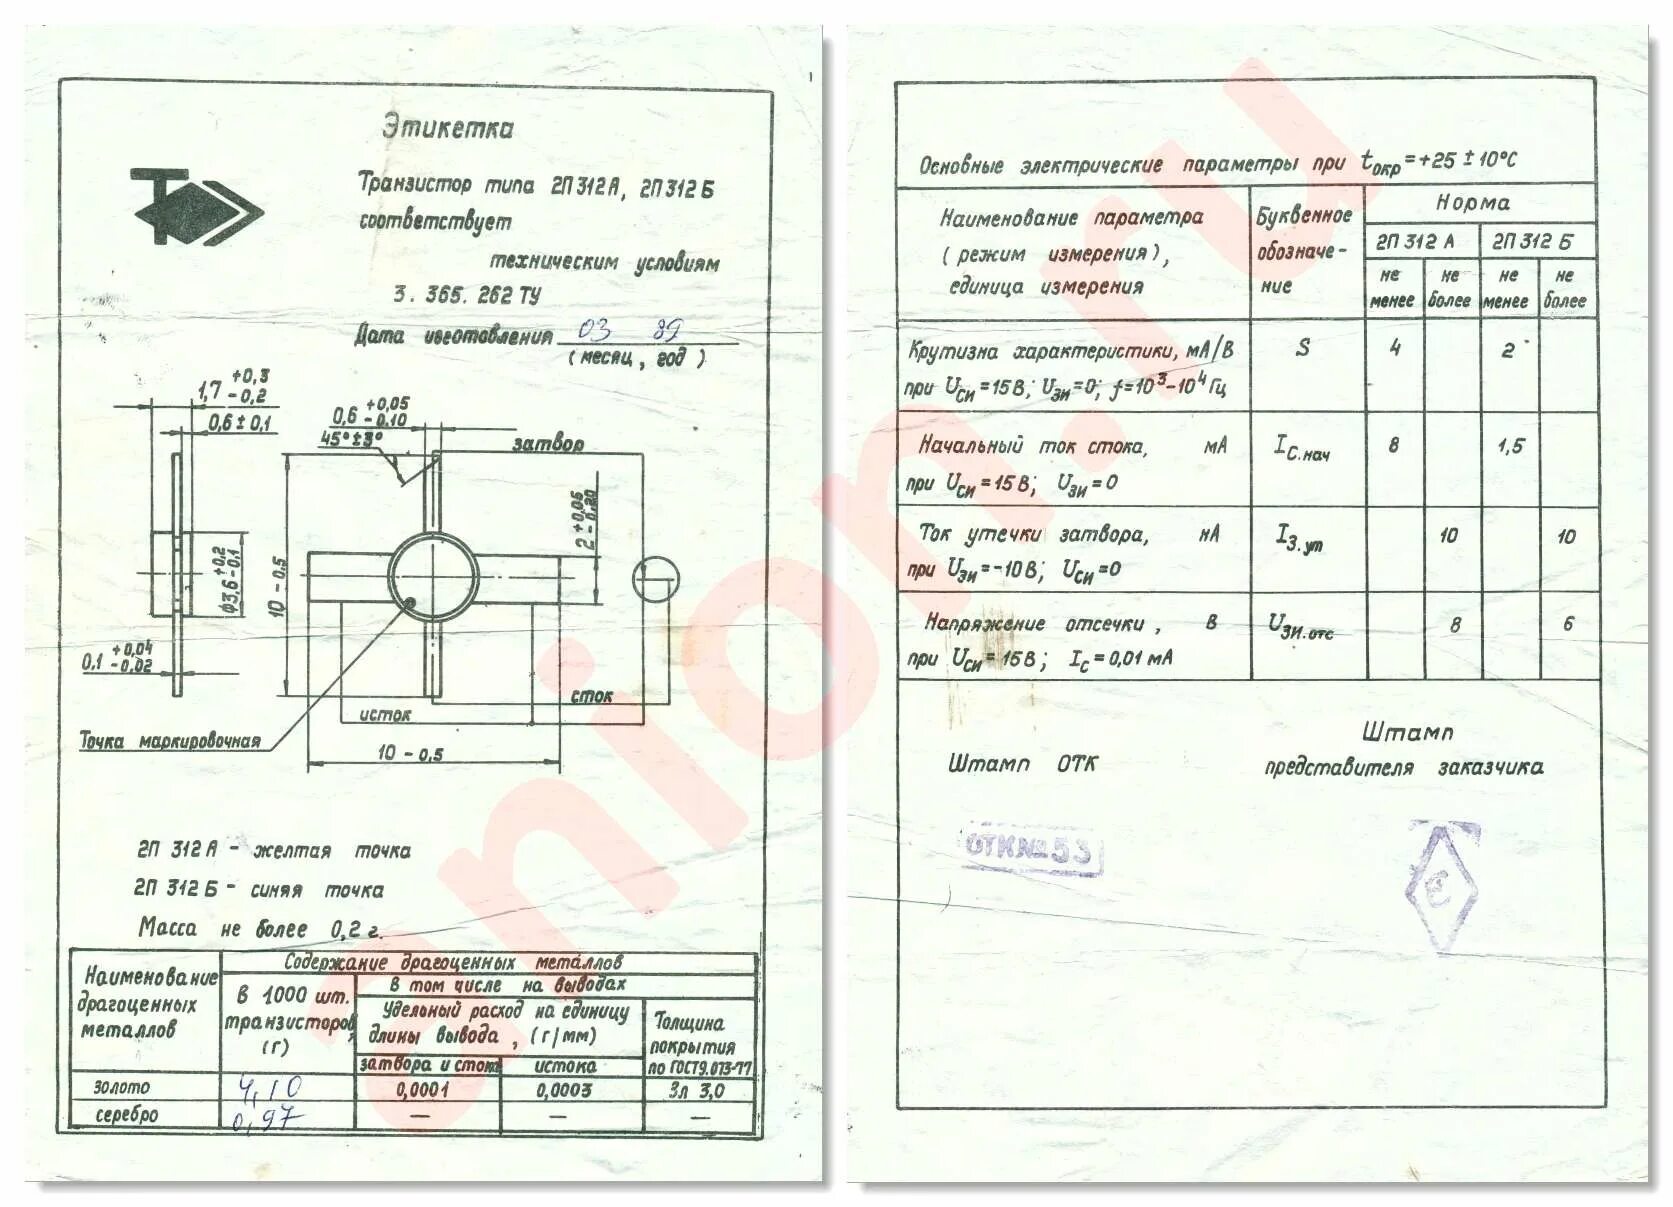 Этикетка
Транзистор типа 2П312А, 2П312Б
соответствует
техническим условиям
3. 365. 262 ТУ
Дата изготовления 03 89
(месяц, год)
1,7 +0,3 -0,2
0,6±0,1
0,6 +0,05 -0,10
45°±3°
затвор
2 +0,06 -0,20
ф3,6 +0,2 -0,1
10-0,5
0,1 +0,04 -0,02
сток
исток
Точка маркировочная
10-0,5
2П 312 А - желтая точка
2П 312 Б - синяя точка
Масса не более 0,2 г.
Наименование драгоценных металлов
Содержание драгоценных металлов
В 1000 шт. транзисторов, (г)
В том числе на выводах
Удельный расход на единицу длины вывода, (г/мм)
Толщина покрытия по ГОСТ9.073-77
затвора и стока
истока
золото 4,10 0,0001 0,0003 Зл 3,0
серебро 0,97 — — —
Основные электрические параметры при tокр=+25±10°С
Наименование параметра (режим измерения), единица измерения
Буквенное обозначение
Норма
2П 312 А 2П 312 Б
не менее не более не менее не более
Крутизна характеристики, мА/В S 4 2
при Uси=15В; Uзи=0; f=10³-10⁴Гц
Начальный ток стока, мА Iс.нач 8 1,5
при Uси=15В; Uзи=0
Ток утечки затвора, нА Iз.ут 10 10
при Uзи=-10В; Uси=0
Напряжение отсечки, В Uзи.отс 8 6
при Uси=15В; Iс=0,01 мА
Штамп ОТК
Штамп
представителя заказчика
ОТК№53
anion.ru